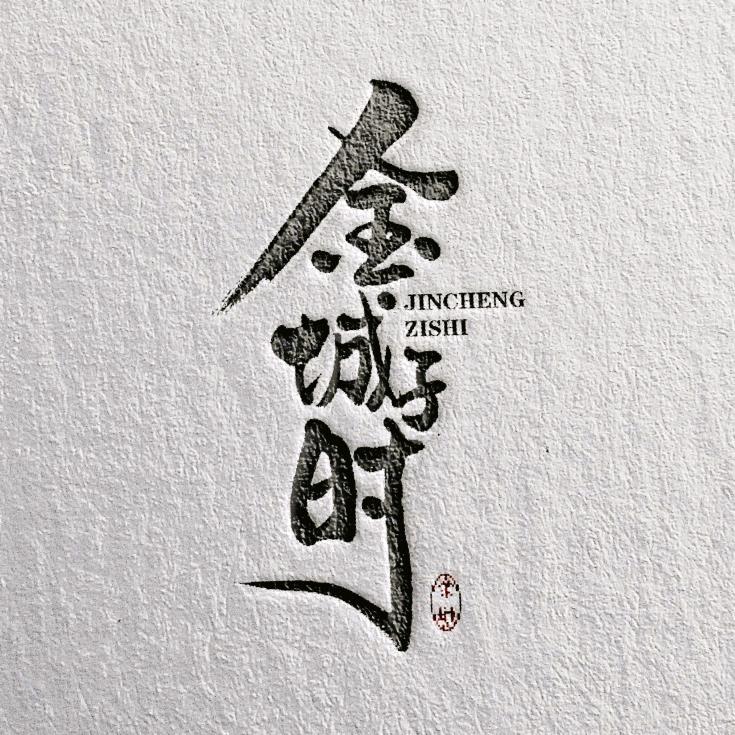 金城子时
JINCHENG
ZISHI